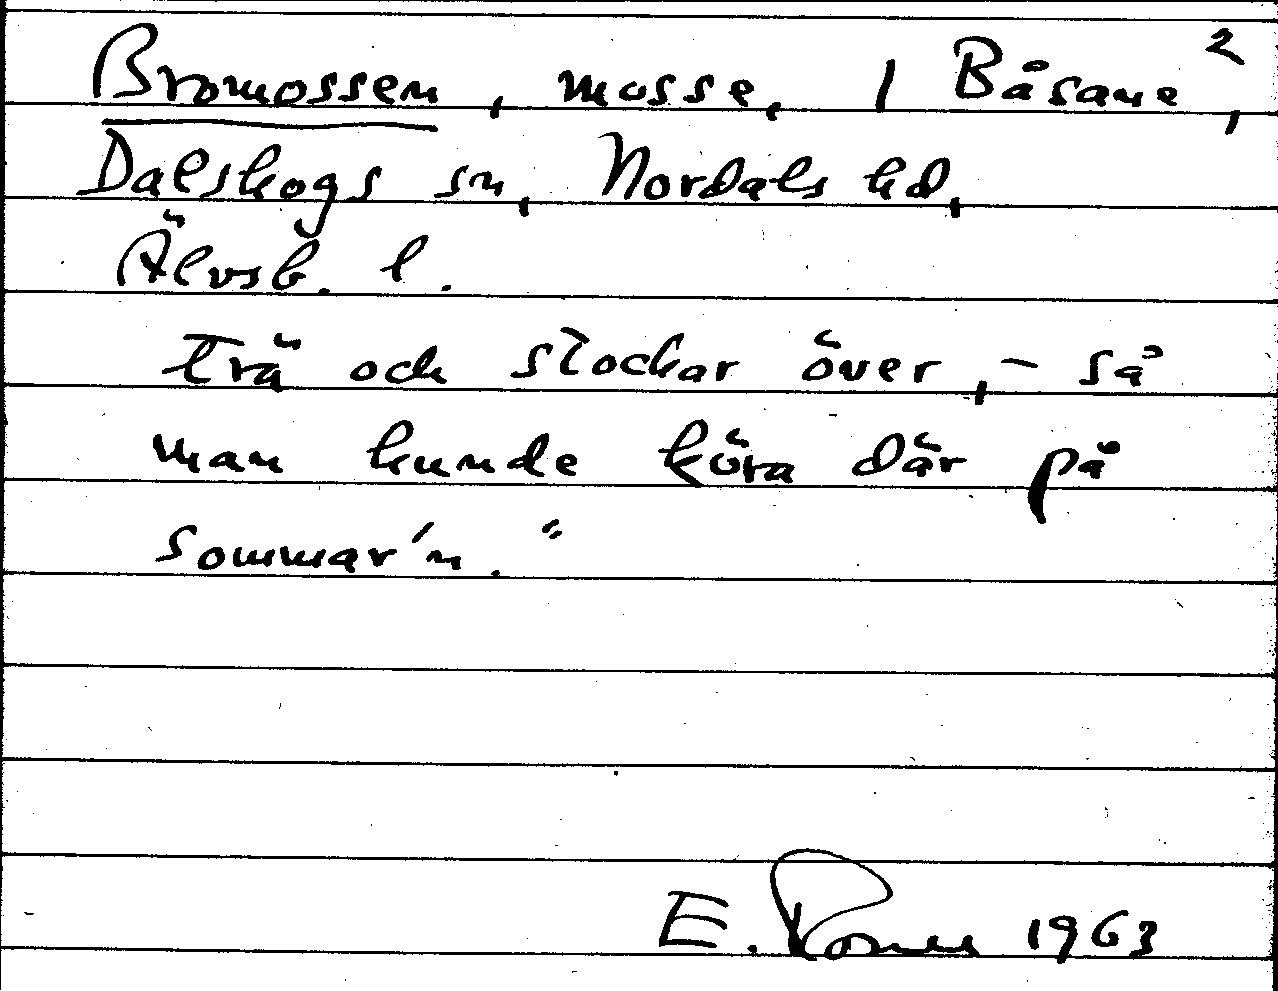 Bromossen, mosse, 1 Båsane²,
Dalskogs sn, Nordals hd,
Älvsb. l.
trä och stockar över, – så
man kunde köra där på
sommar'n."
E. 1963